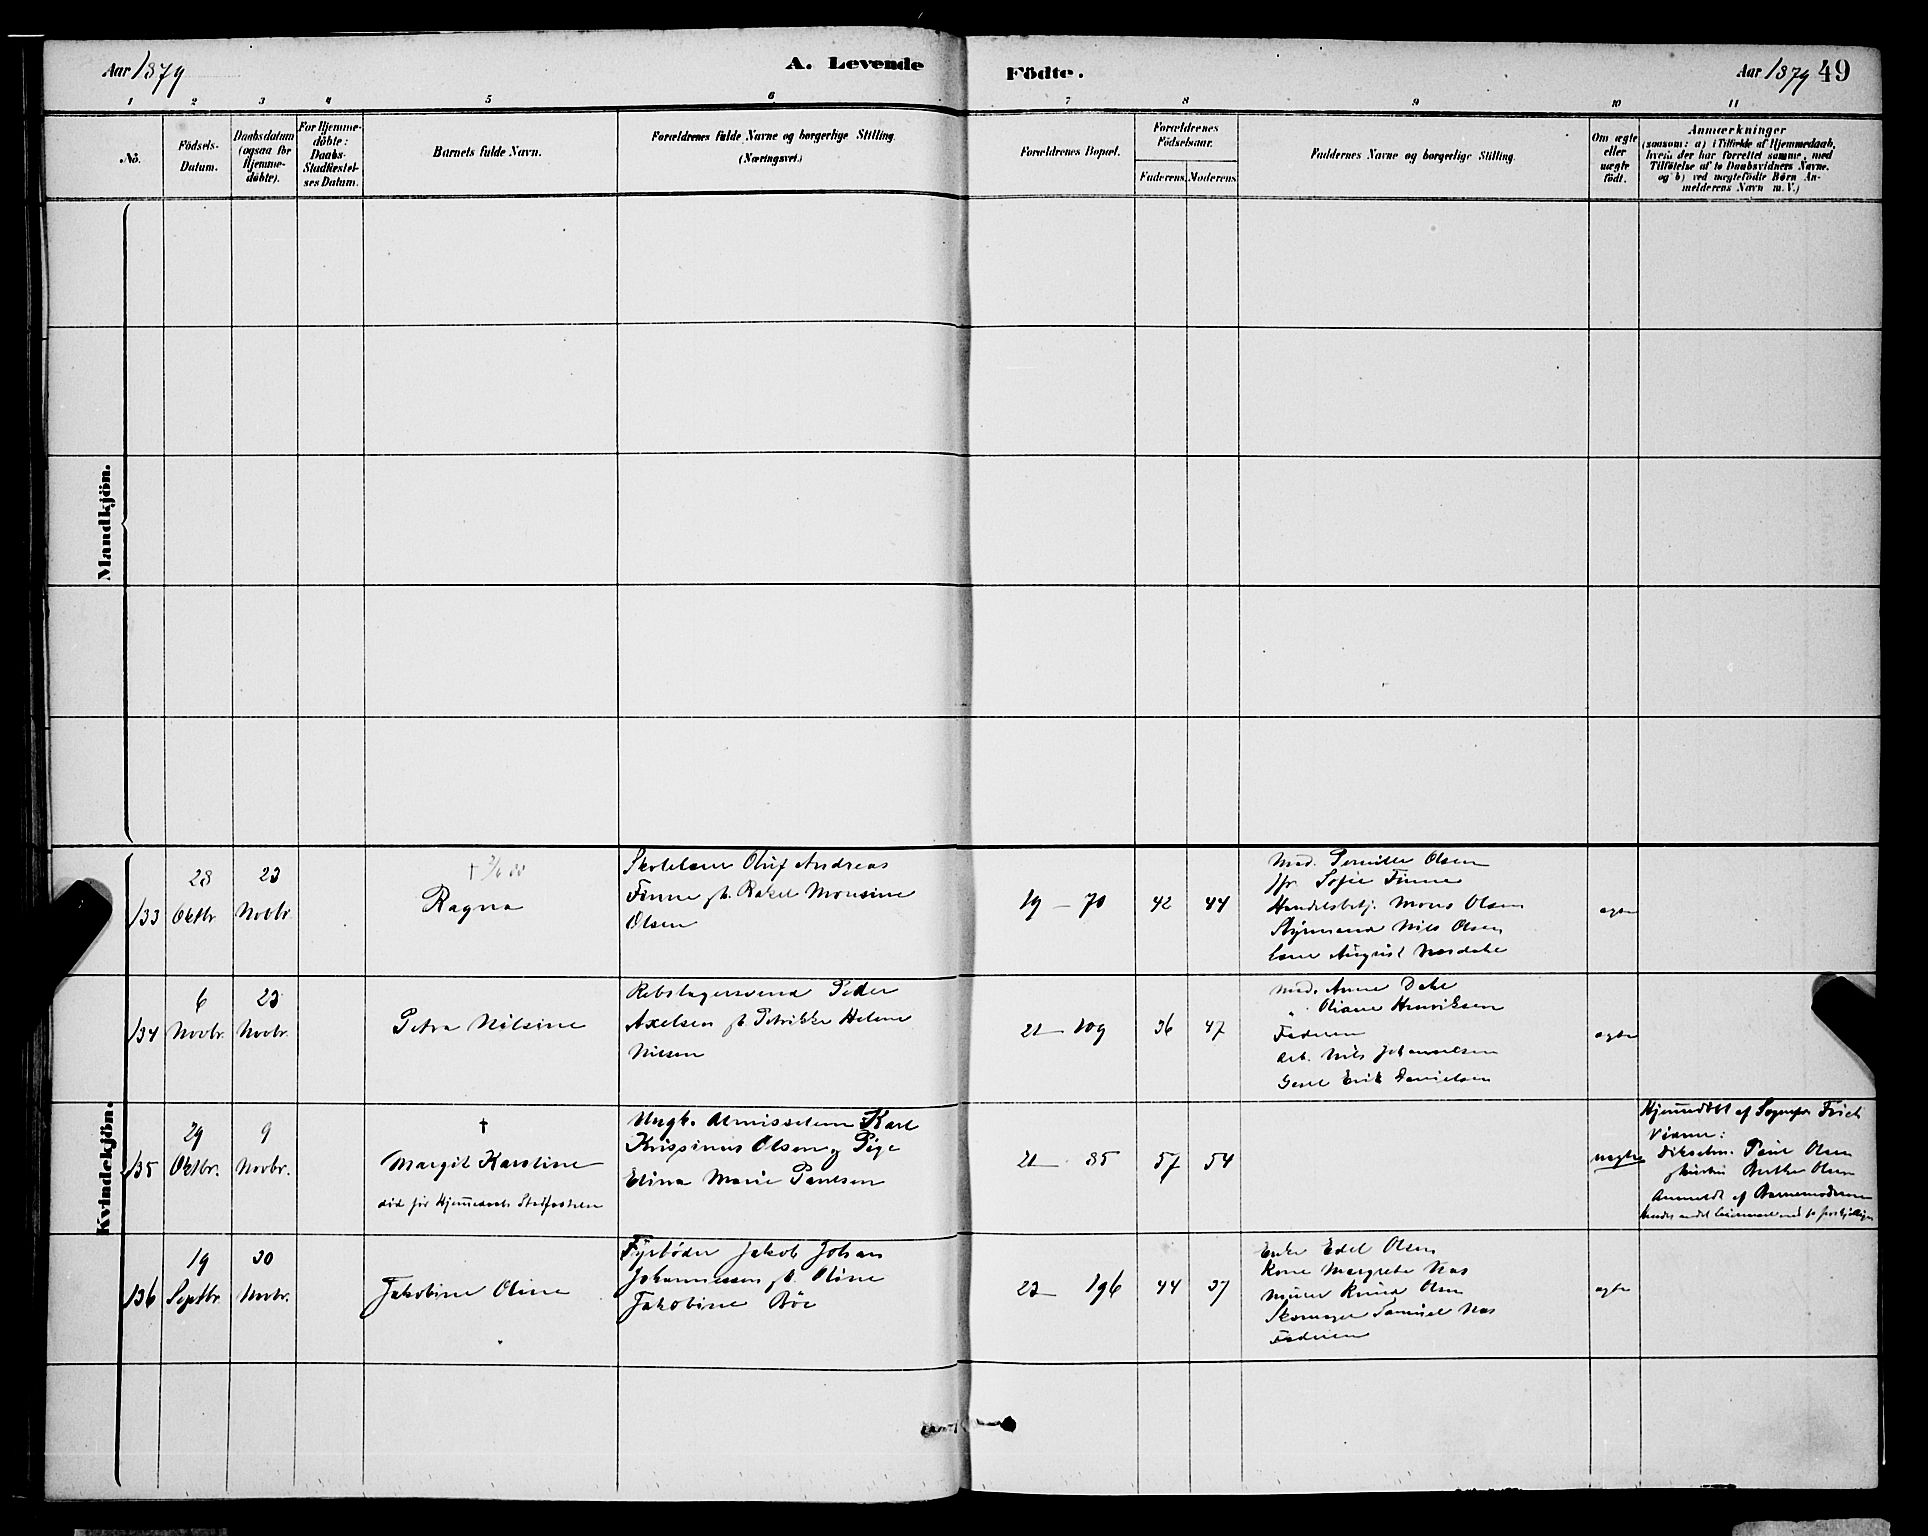 Aar 1879
A. Levende
Födte.
Aar 1879 49
1 2 3 4 5 6 7 8 9 10 11
No.
Födsels-
Datum.
Daabsdatum
(ogsaa for
Hjemme-
döbte).
For Hjemme-
döbte:
Daabs-
Stadfæstel-
ses Datum.
Barnets fulde Navn.
Forældrenes fulde Navne og borgerlige Stilling.
(Næringsvei.)
Forældrenes Bopæl.
Forældrenes
Födselsaar.
Faderens. Moderens.
Faddernes Navne og borgerlige Stilling.
Om ægte
eller
uægte
født.
Anmærkninger
(saasom: a) i Tilfælde af Hjemmedaab,
hvem der har forrettet samme, med
Tilföielse af to Daabsvidners Navne.
og b) ved uægtefödte Börn An-
melderens Navn m. V.)
Mandkjön.
Kvindekjön.
133
28
Oktbr.
23
Novbr.
†
Ragna
Oluf Andreas
Finne Rakel Monsine
Olsen
19 - 70
42
44
Mad. Pernille Olsen
Jfr. Sofie Finne
Handelsbetj. Mons Olsen
Styrmand Nils Olsen
August
ægte
134
6
Novbr.
23
Novbr.
Petra Nilsine
Rebslagersvend Peder
Axelsen Petrikke Helene
Nilsen
21 - 109
36
47
Mad. Anne Dahl
" Oliane Henriksen
Faderen
Arb. Nils Johannesen
Gesel Erik Danielsen
ægte
135
29
Oktbr.
9
Novbr.
†
Margit Karoline
död før Hjemmedaabs Stadfæstelse
Ungk. Karl
Krispinus Olsen og Pige
Elina Marie Paulsen
21 - 85
57
54
uægte
Hjemmedöbt af Sognepr. Frich
Vidner:
Olsen
Berthe Olsen
Anmeldt af Barnemoderen
136
19
Septbr.
30
Novbr.
Jakobine Oline
Fyrböder Jakob Johan
Johannessen Oline
Jakobine Böe
23 - 196
44
37
Enke Edel Olsen
Kone Margrete Næs
Murer Knud Olsen
Skomager Samuel Næs
Faderen
ægte